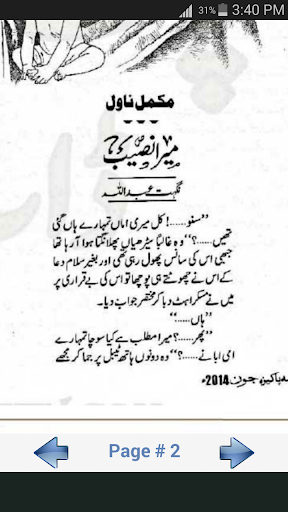 31% 3:40 PM
مکمل ناول
میرا نصیب
نگہت عبداللہ
’’سنو......! کل میری اماں تمہارے ہاں گئی
تھیں......؟‘‘ وہ غالباً سیڑھیاں پھلانگتا ہوا آ رہا تھا
جبھی اس کی سانس پھول رہی تھی اور بغیر سلام دعا
کے اس نے چھوٹتے ہی پوچھا تو اس کی بے قراری پر
میں نے مسکراہٹ دبا کر مختصر جواب دیا۔
’’ہاں......‘‘
’’پھر......؟ میرا مطلب ہے کیا سوچا تمہارے
امی ابا نے......؟‘‘ وہ دونوں ہاتھ ٹیبل پر جما کر مجھے
پاکیزہ جون 2014ء
Page # 2